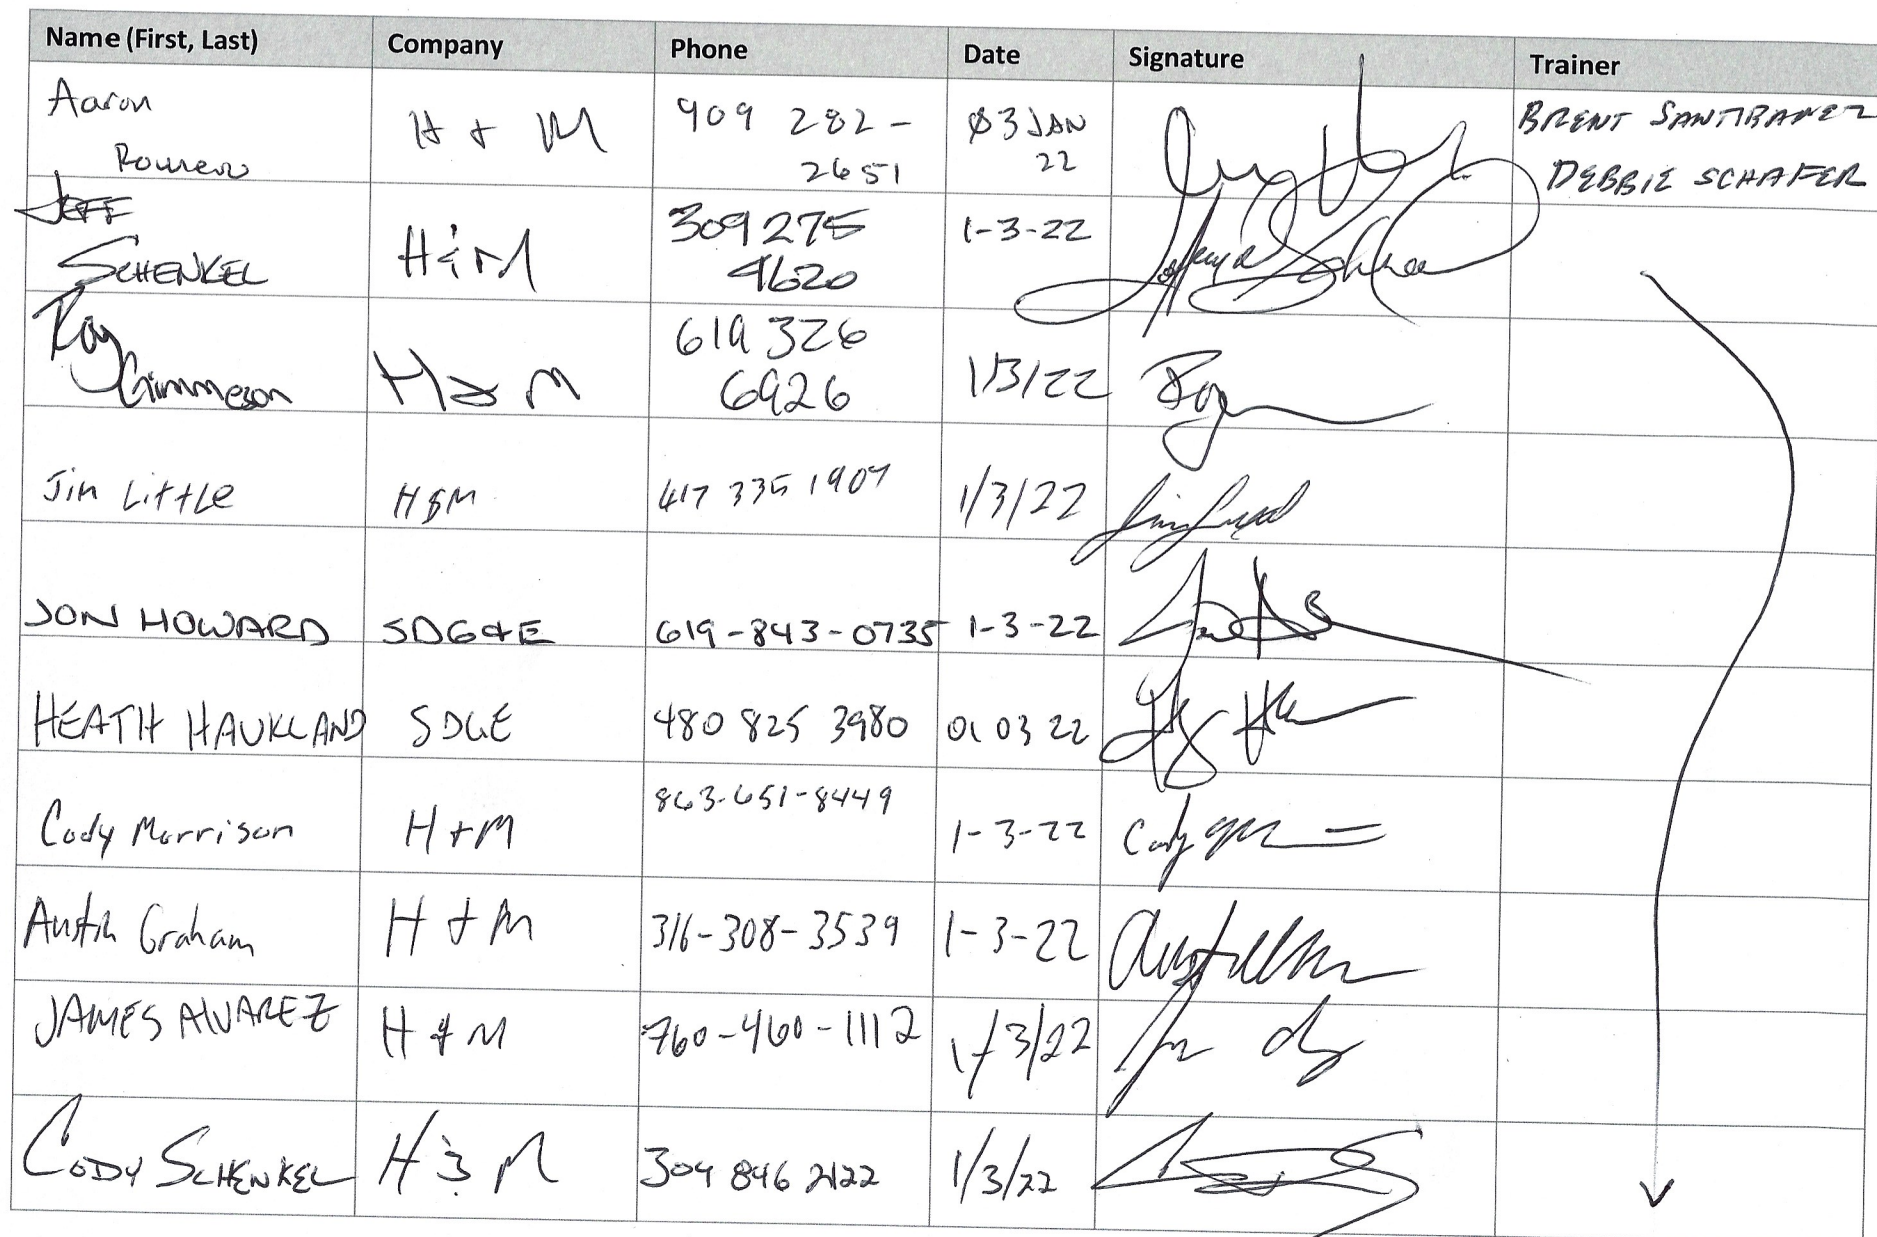 Name (First, Last) Company Phone Date Signature Trainer
Aaron Romero H + M 909 282-2651 03 JAN 22 BRENT SANTIBANEZ
DEBBIE SCHAFER
JEFF SCHENKEL H & M 309 275 4620 1-3-22
Roy Gimmeson H & M 619 326 6926 1/3/22
Jim Little H&M 417 335 1907 1/3/22
JON HOWARD SDG&E 619-843-0735 1-3-22
HEATH HAUKLAND SDGE 480 825 3980 01 03 22
Cody Morrison H+M 863-651-8449 1-3-22
Austin Graham H + M 316-308-3539 1-3-22
JAMES ALVAREZ H & M 760-460-1112 1/3/22
CODY SCHENKEL H & M 309 846 2122 1/3/22